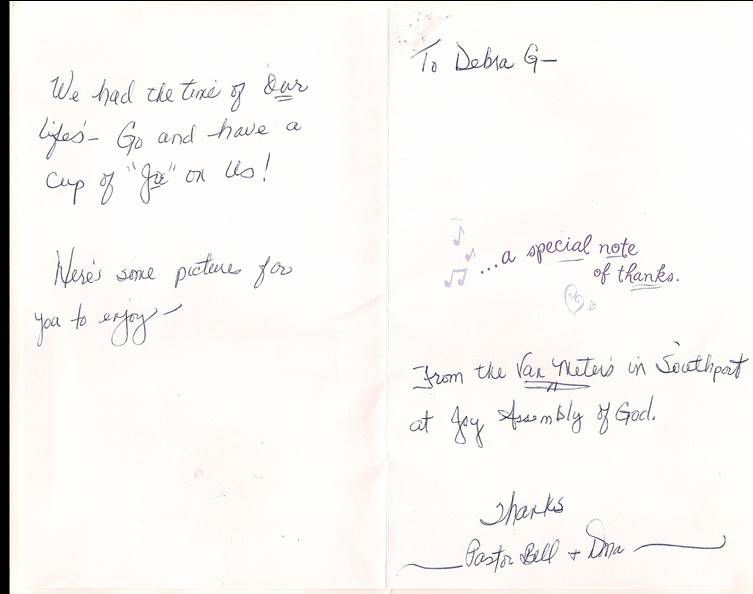 We had the time of our
life's - Go and have a
cup of "Joe" on us!
Here's some pictures for
you to enjoy -
To Debra G -
...a special note
of thanks.
From the Van Meter's in Southport
at Joy Assembly of God.
Thanks
Pastor Bill +